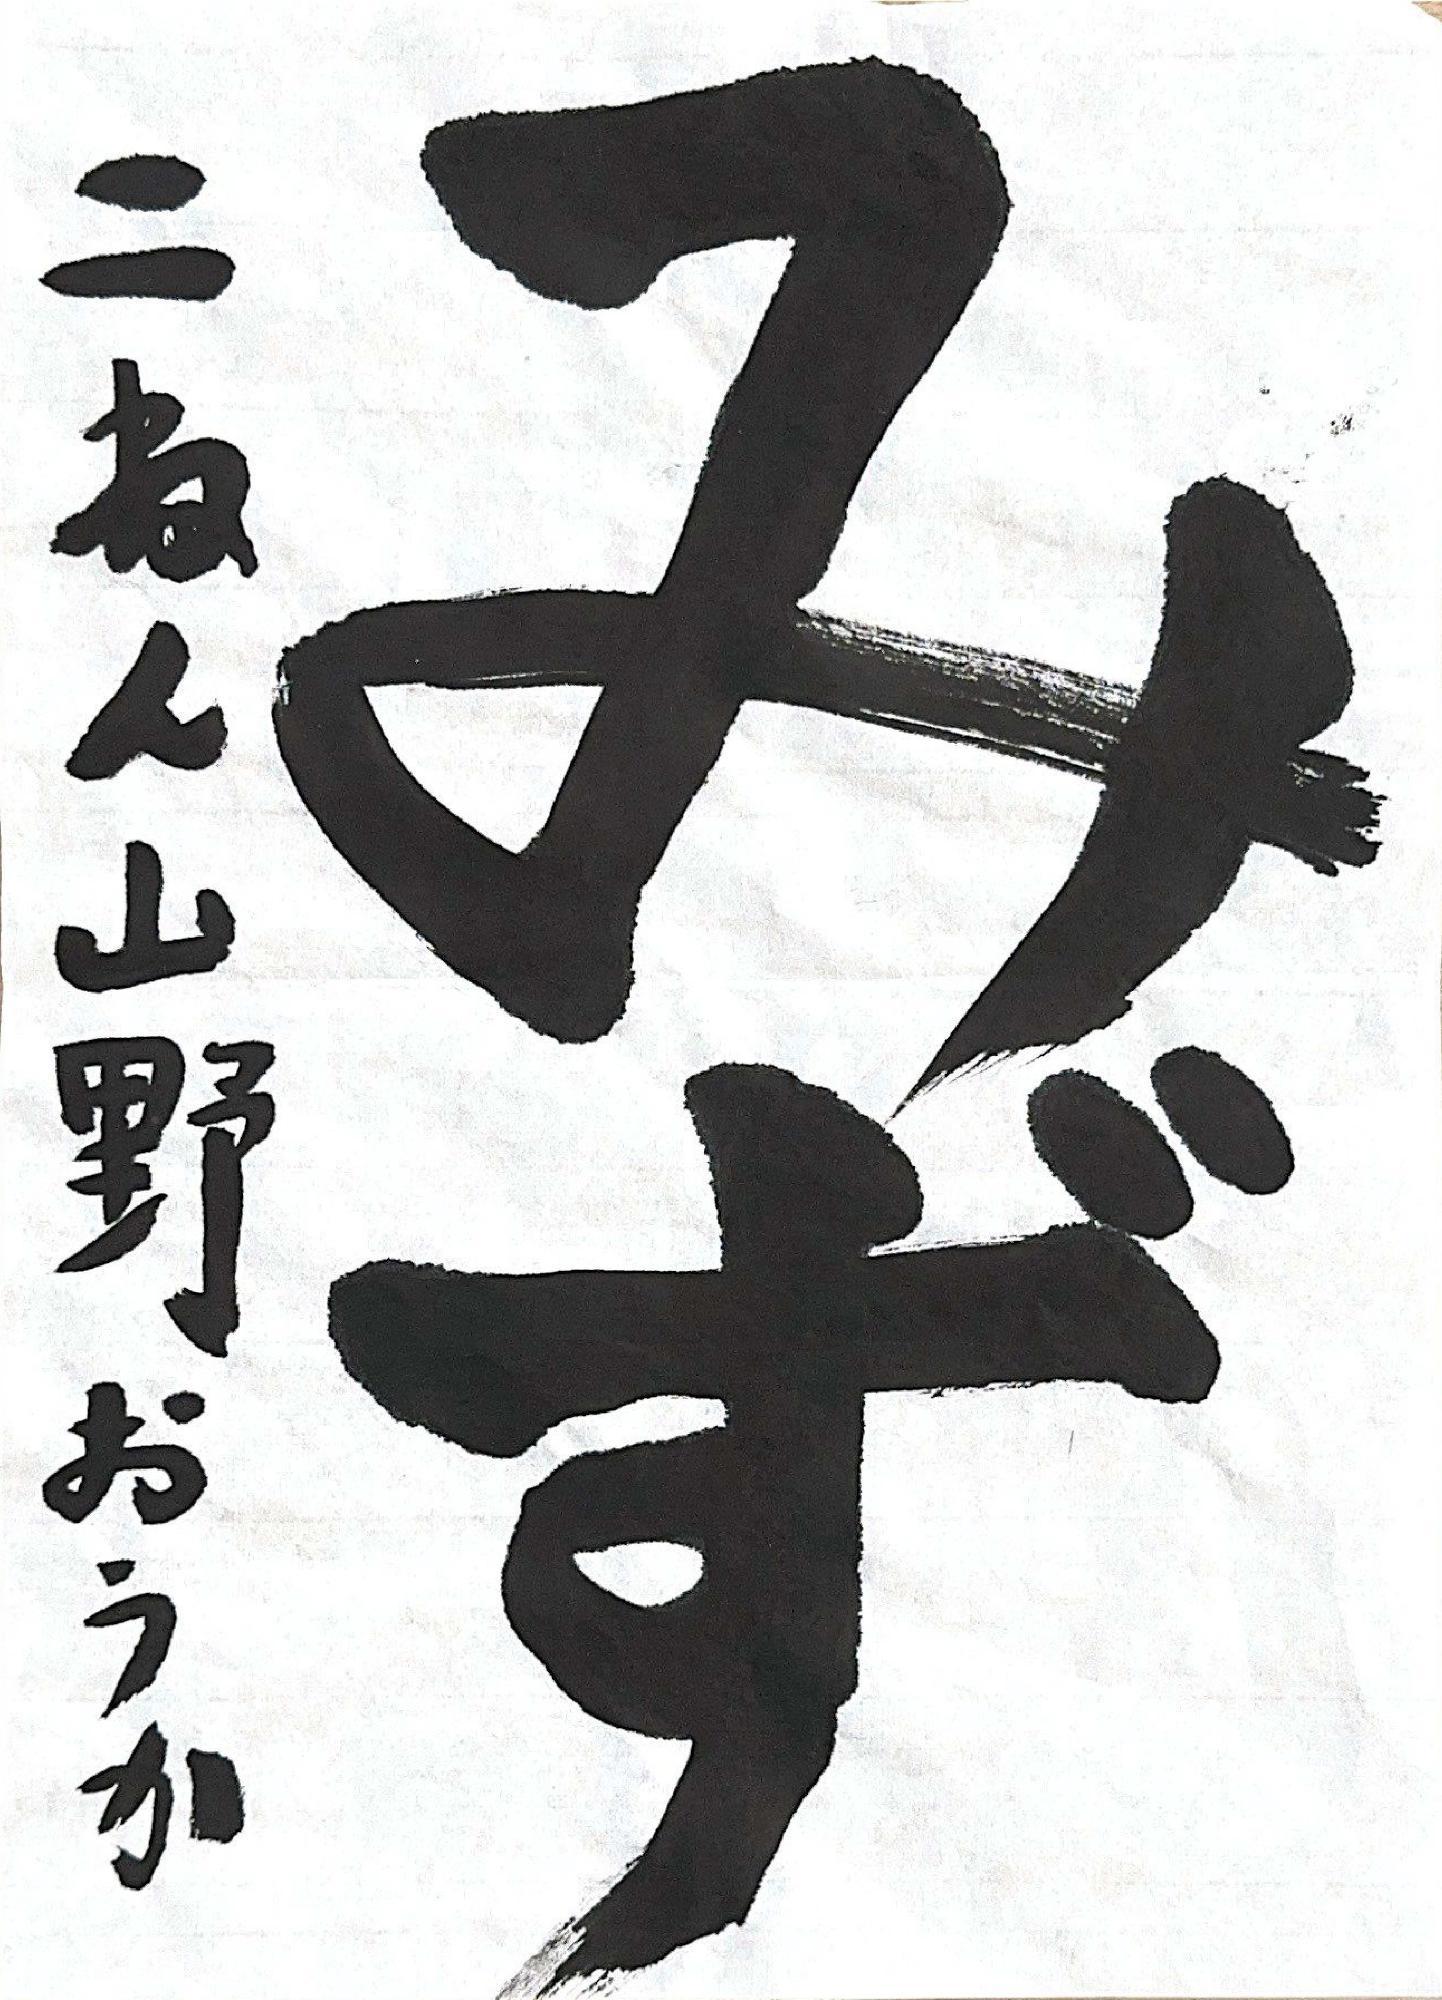 みず
二ねん山野おうか